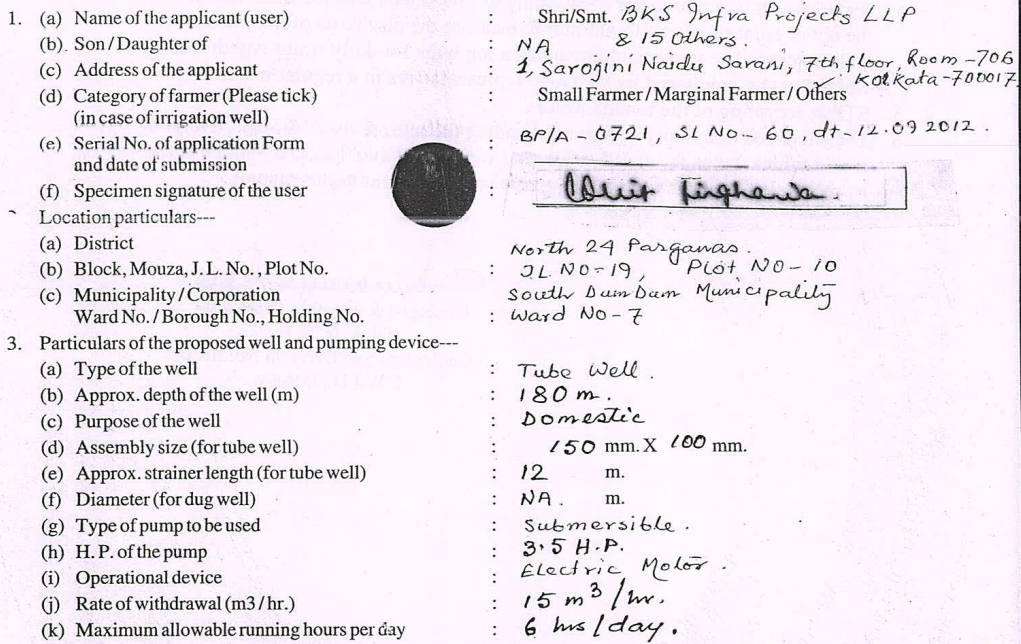 1. (a) Name of the applicant (user) Shri/Smt. BKS Infra Projects LLP
(b). Son / Daughter of : NA & 15 Others
(c) Address of the applicant : 1 Sarojini Naidu Sarani, 7th floor, Room -706
Kolkata-700017
(d) Category of farmer (Please tick) : Small Farmer / Marginal Farmer / Others
(in case of irrigation well)
(e) Serial No. of application Form : BP/A - 0721, SL No - 60, dt - 12.09 2012.
and date of submission
(f) Specimen signature of the user :
Location particulars---
(a) District North 24 Parganas.
(b) Block, Mouza, J. L. No. , Plot No. : JL NO-19, Plot NO-10
(c) Municipality / Corporation South DumDum Municipality
Ward No. / Borough No., Holding No. : Ward No-7
3. Particulars of the proposed well and pumping device---
(a) Type of the well : Tube Well.
(b) Approx. depth of the well (m) : 180 m.
(c) Purpose of the well : Domestic
(d) Assembly size (for tube well) : 150 mm. X 100 mm.
(e) Approx. strainer length (for tube well) : 12 m.
(f) Diameter (for dug well) : NA. m.
(g) Type of pump to be used : Submersible.
(h) H.P. of the pump : 3.5 H.P.
(i) Operational device : Electric Motor.
(j) Rate of withdrawal (m3 / hr.) : 15 m³/hr.
(k) Maximum allowable running hours per day : 6 hrs/day.